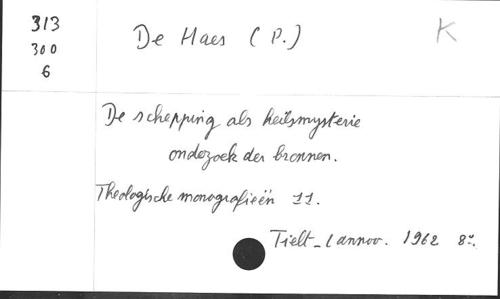 313
300
6
De Haes (P.)
K
De schepping als heilsmysterie
onderzoek der bronnen.
Theologische monografieën 11.
Tielt - Lannoo. 1962 8°.